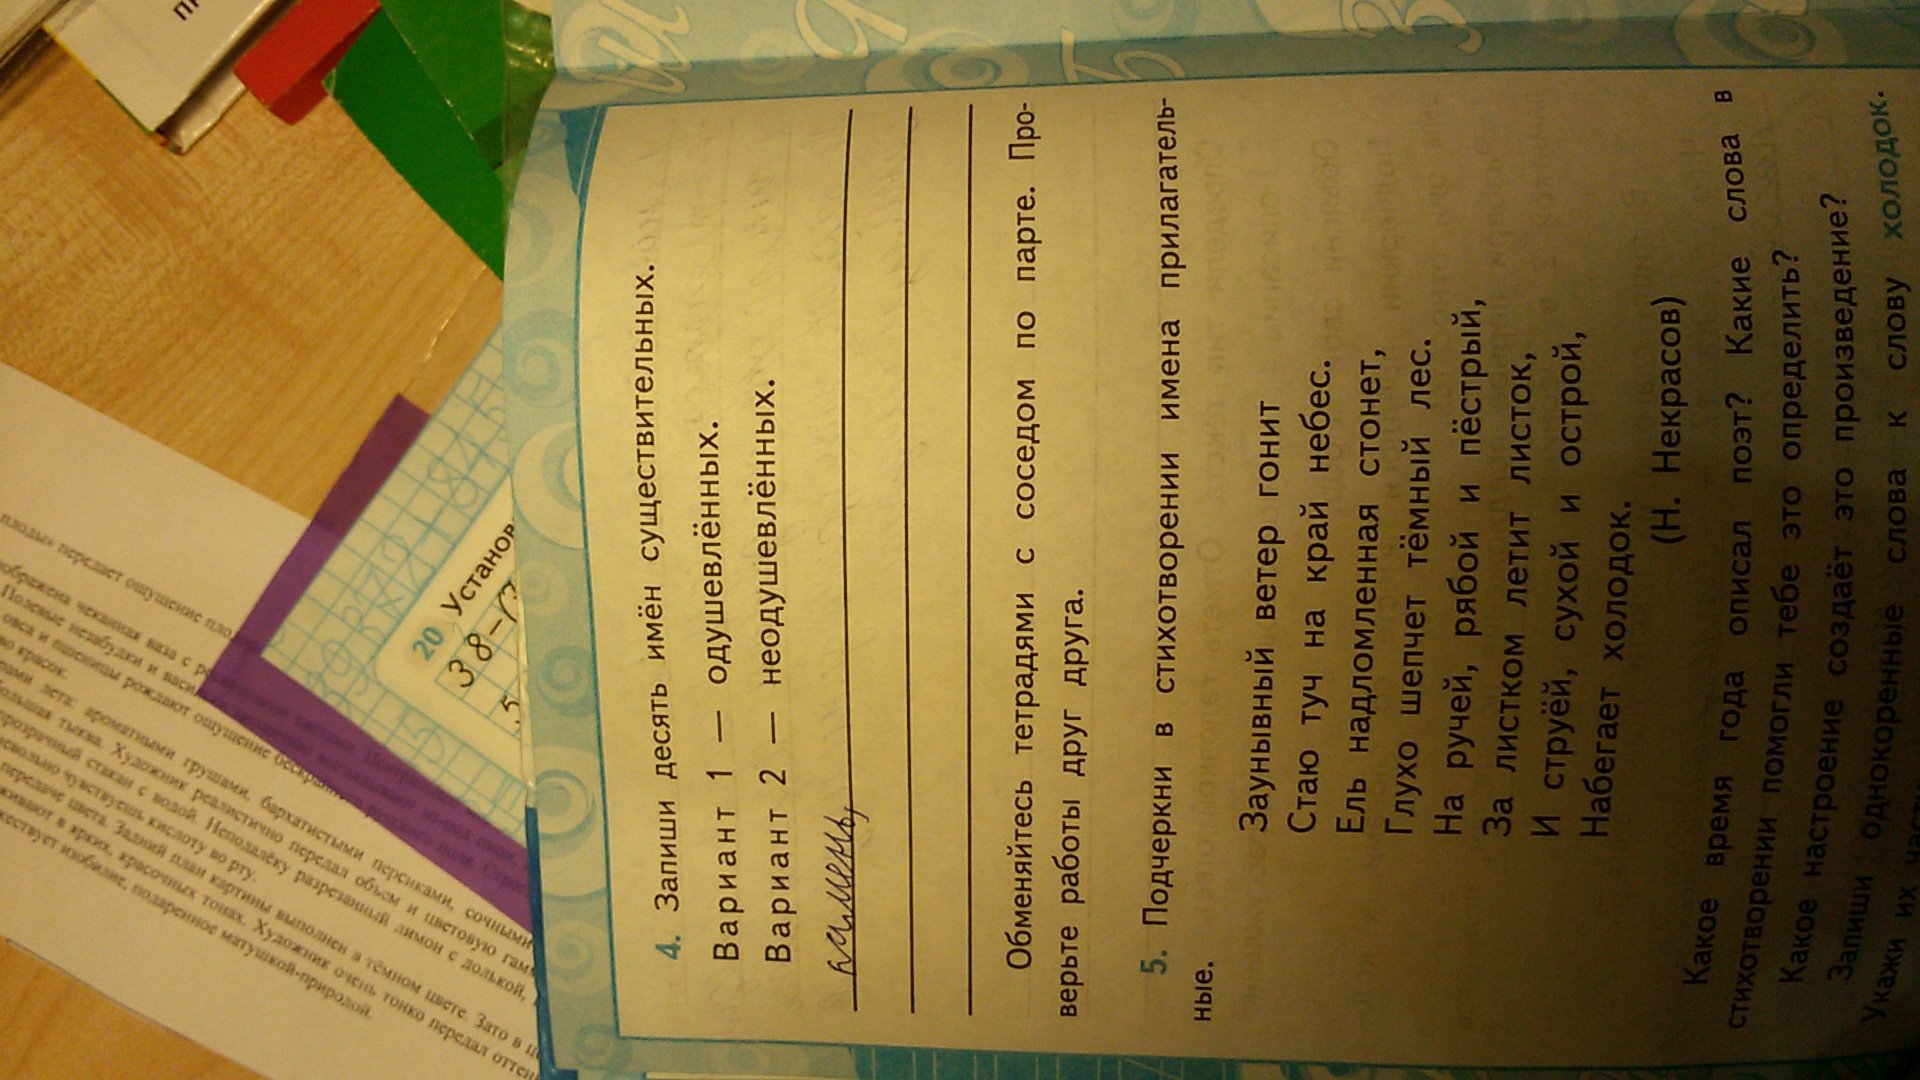 4. Запиши десять имён существительных.
Вариант 1 — одушевлённых.
Вариант 2 — неодушевлённых.
камень,
Обменяйтесь тетрадями с соседом по парте. Про-
верьте работы друг друга.
5. Подчеркни в стихотворении имена прилагатель-
ные.
Заунывный ветер гонит
Стаю туч на край небес.
Ель надломленная стонет,
Глухо шепчет тёмный лес.
На ручей, рябой и пёстрый,
За листком летит листок,
И струёй, сухой и острой,
Набегает холодок.
(Н. Некрасов)
Какое время года описал поэт? Какие слова в
стихотворении помогли тебе это определить?
Какое настроение создаёт это произведение?
Запиши однокоренные слова к слову холодок.
Укажи их
20 Установ
38-(
5
плоды» передает ощущение
изображена чеканная ваза с
Полевые незабудки и
овса и пшеницы рождают ощущение
красок.
лета: ароматными грушами, бархатистыми персиками, сочными
большая тыква. Художник реалистично передал объем и цветовую
прозрачный стакан с водой. Неподалёку разрезанный лимон с долькой,
чувствуешь кислоту во рту.
передаче цвета. Задний план картины выполнен в тёмном цвете. Зато в
в ярких, красочных тонах. Художник очень тонко передал
изобилие, подаренное матушкой-природой.